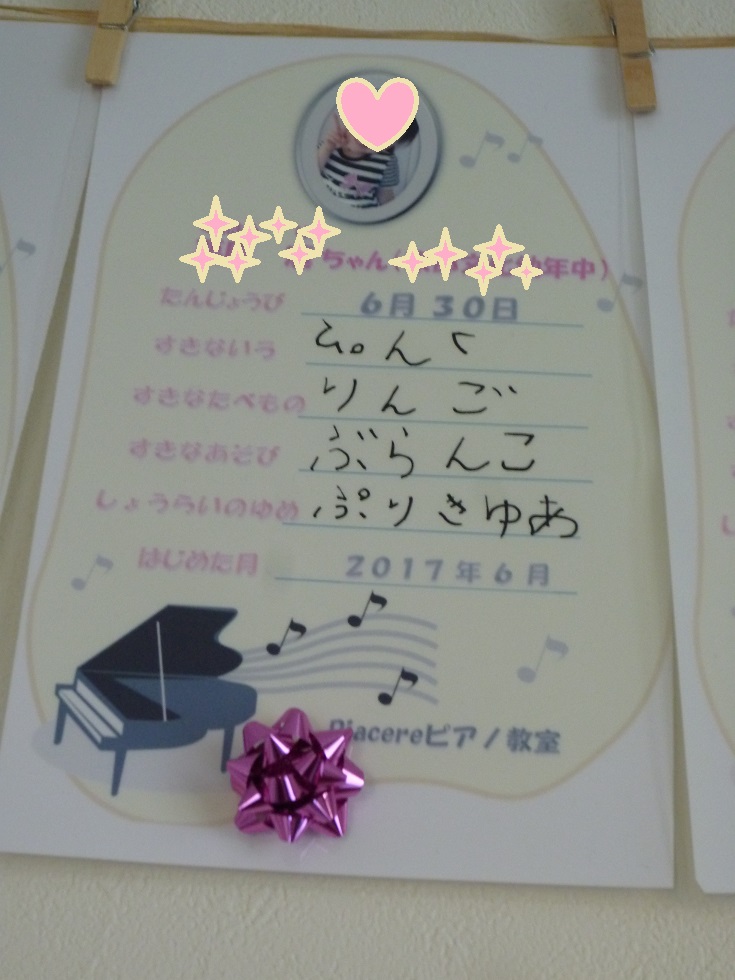 ちゃん(年中)
たんじょうび 6月30日
すきないろ ぴんく
すきなたべもの りんご
すきなあそび ぶらんこ
しょうらいのゆめ ぷりきゆあ
はじめた月 2017年6月
Piacereピアノ教室